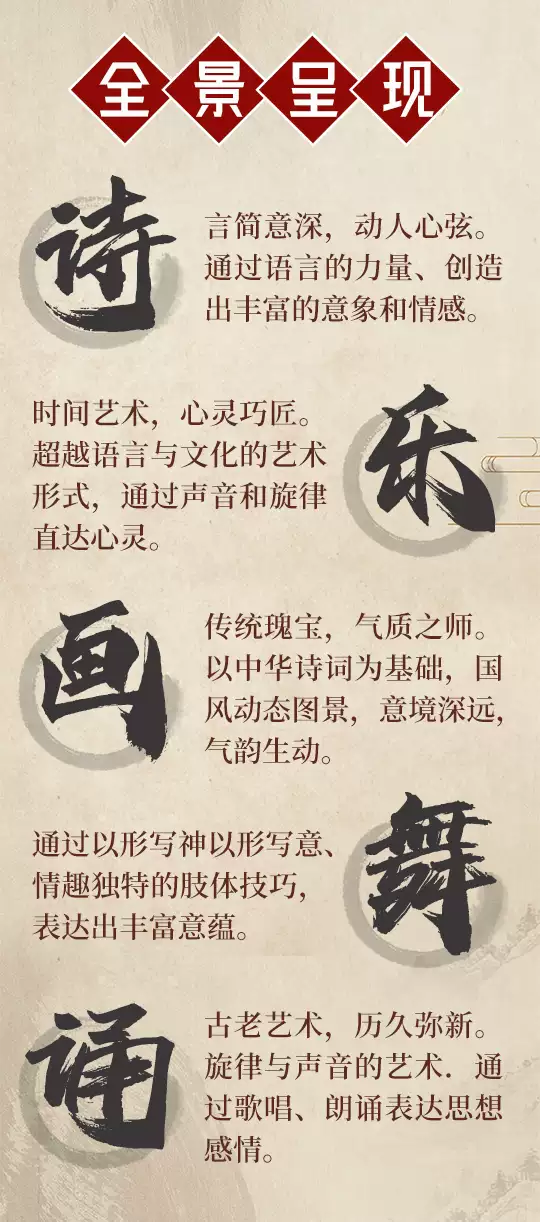 全景呈现
诗
言简意深，动人心弦。
通过语言的力量、创造
出丰富的意象和情感。
时间艺术，心灵巧匠。
超越语言与文化的艺术
形式，通过声音和旋律
直达心灵。
乐
画
传统瑰宝，气质之师。
以中华诗词为基础，国
风动态图景，意境深远，
气韵生动。
通过以形写神以形写意、
情趣独特的肢体技巧，
表达出丰富意蕴。
舞
诵
古老艺术，历久弥新。
旋律与声音的艺术．通
过歌唱、朗诵表达思想
感情。